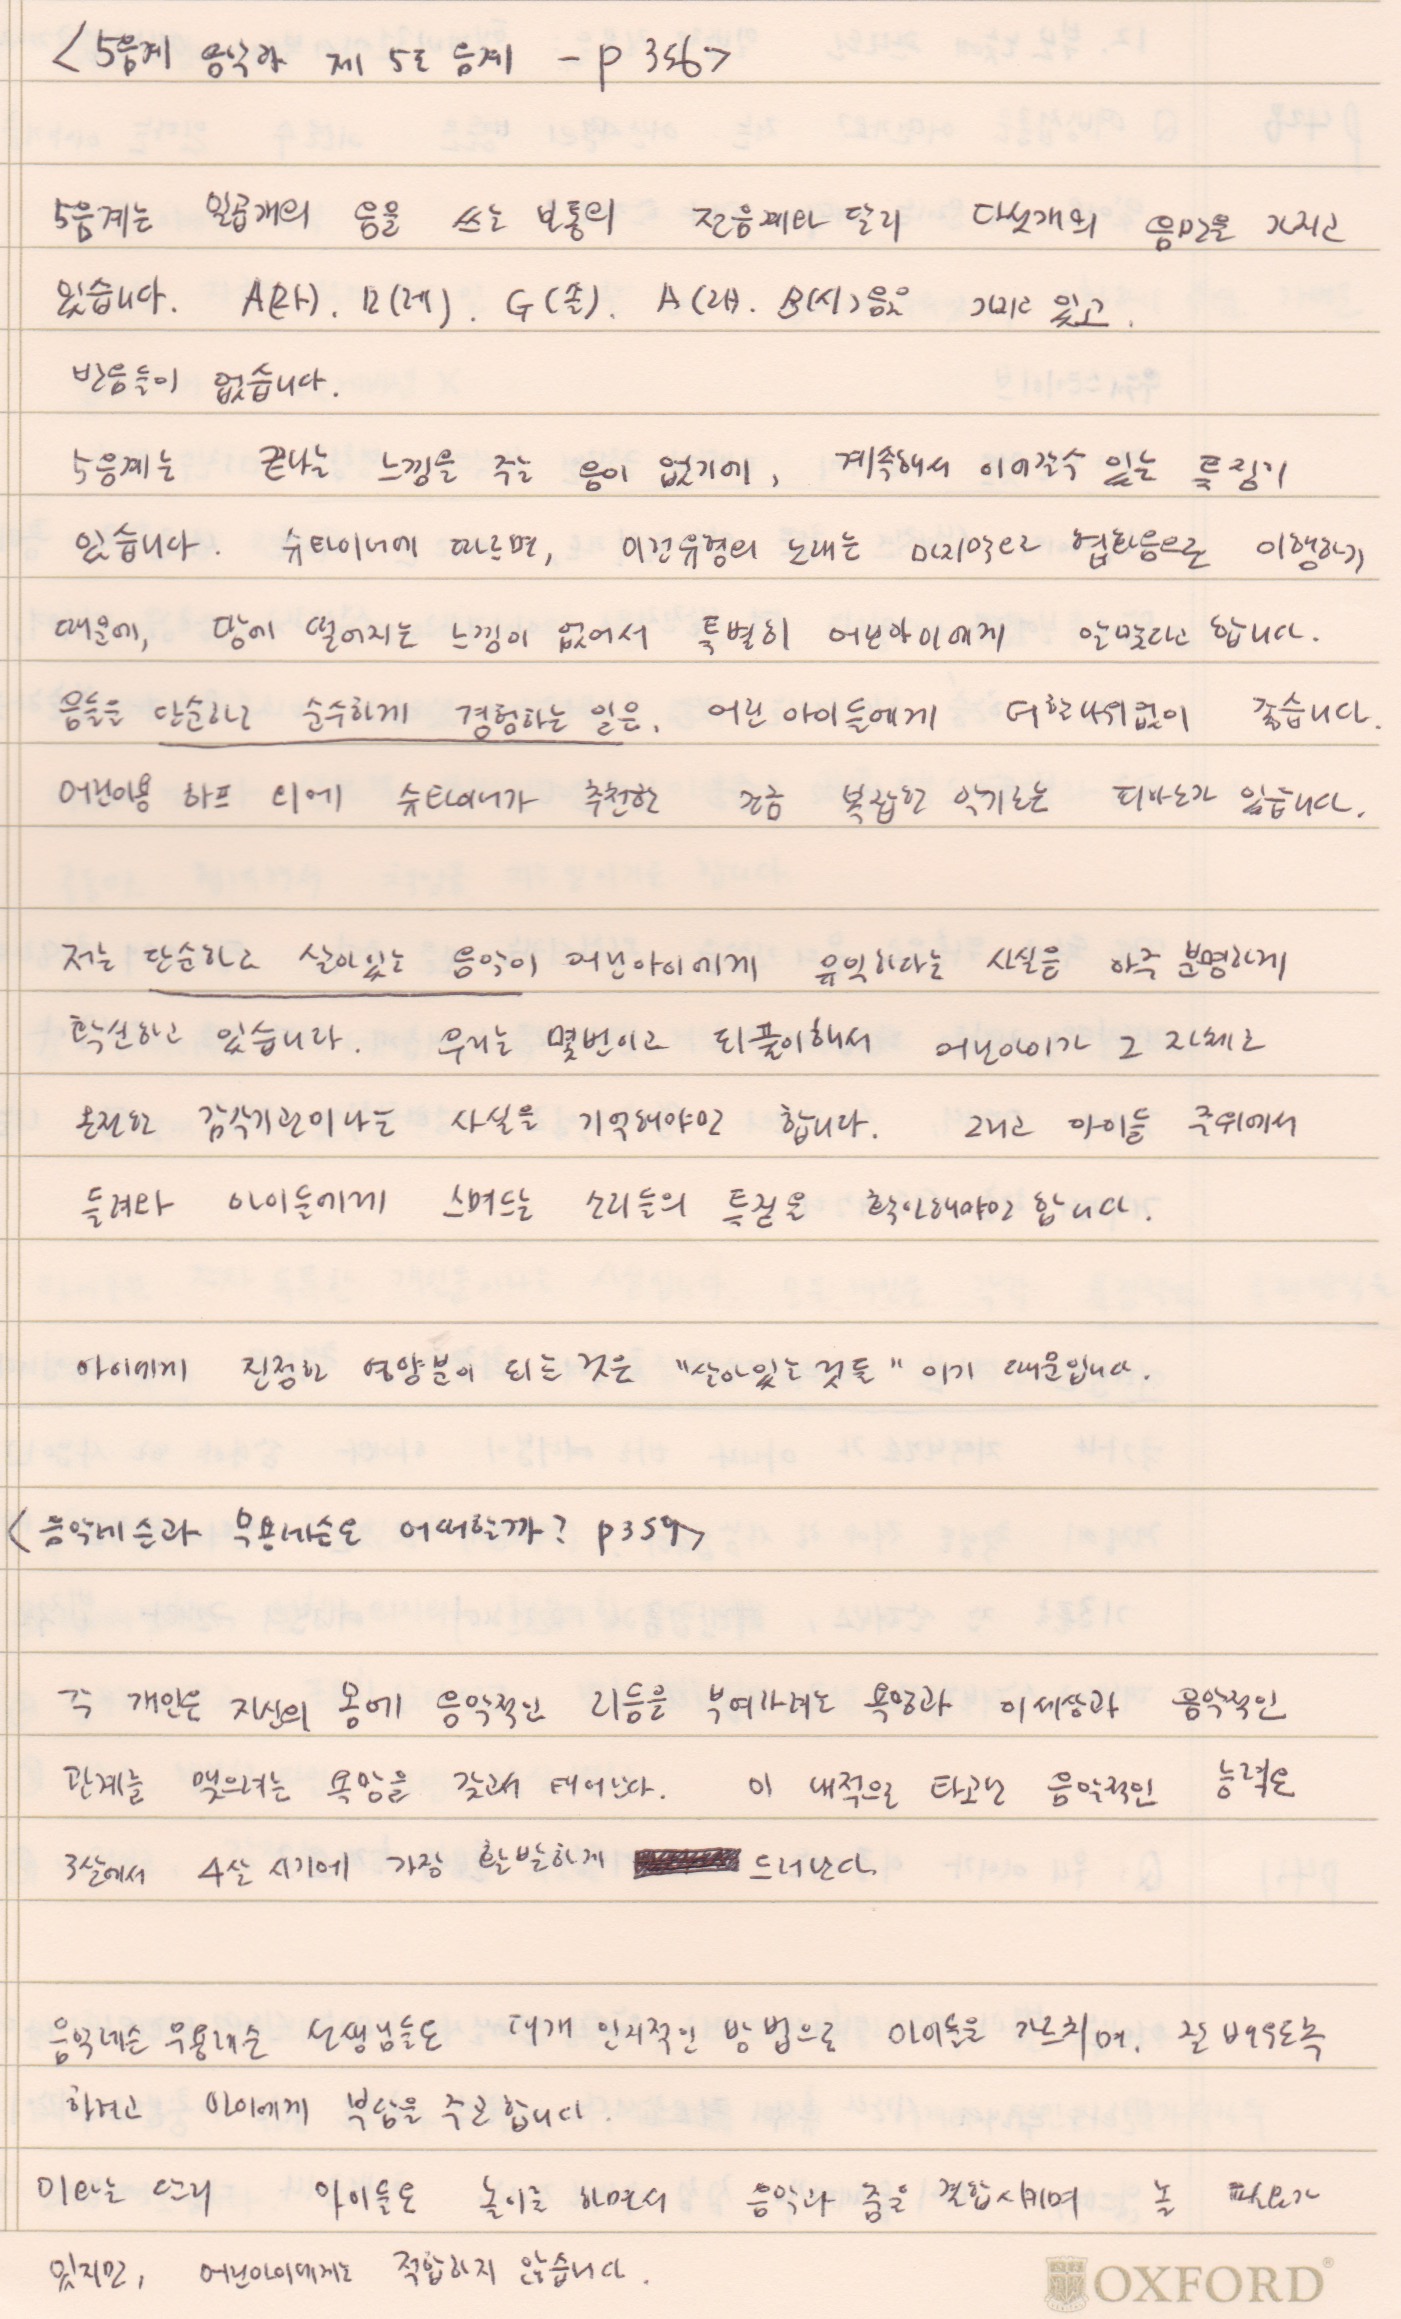 <5음계 음악과 제 5도 음계 - p 356>
5음계는 일곱개의 음을 쓰는 보통의 전음계와 달리 다섯개의 음만을 가지고
있습니다. A(라). D(레). G(솔). A(라). B(시)음을 가지고 있고.
반음들이 없습니다.
5음계는 끝나는 느낌을 주는 음이 없기에, 계속해서 이어갈수 있는 특징이
있습니다. 슈타이너에 따르면, 이런유형의 노래는 마지막으로 협화음으로 이행하기
때문에, 땅에 떨어지는 느낌이 없어서 특별히 어린아이에게 알맞다고 합니다.
음들을 단순하고 순수하게 경험하는 일은, 어린 아이들에게 더할나위없이 좋습니다.
어린이용 하프 외에 슈타이너가 추천한 조금 복잡한 악기로는 피아노가 있습니다.
저는 단순하고 살아있는 음악이 어린아이에게 유익하다는 사실을 아주 분명하게
확신하고 있습니다. 우리는 몇번이고 되풀이해서 어린아이가 그 자체로
온전한 감각기관이라는 사실을 기억해야만 합니다. 그리고 아이들 주위에서
들려와 아이들에게 스며드는 소리들의 특질을 확인해야만 합니다.
아이에게 진정한 영양분이 되는 것은 "살아있는 것들" 이기 때문입니다.
<음악레슨과 무용레슨은 어떠할까? p359>
각 개인은 자신의 몸에 음악적인 리듬을 부여하려는 욕망과 이세상과 음악적인
관계를 맺으려는 욕망을 갖고서 태어난다. 이 내적으로 타고난 음악적인 능력은
3살에서 4살 시기에 가장 활발하게 드러난다.
음악레슨 무용레슨 선생님들은 대개 인지적인 방법으로 아이들을 가르치며. 잘 배우도록
하려고 아이에게 부담을 주곤 합니다.
이와는 달리 아이들은 놀이를 하면서 음악과 춤을 결합시키며 놀 필요가
있지만, 어린아이에게는 적합하지 않습니다.
OXFORD